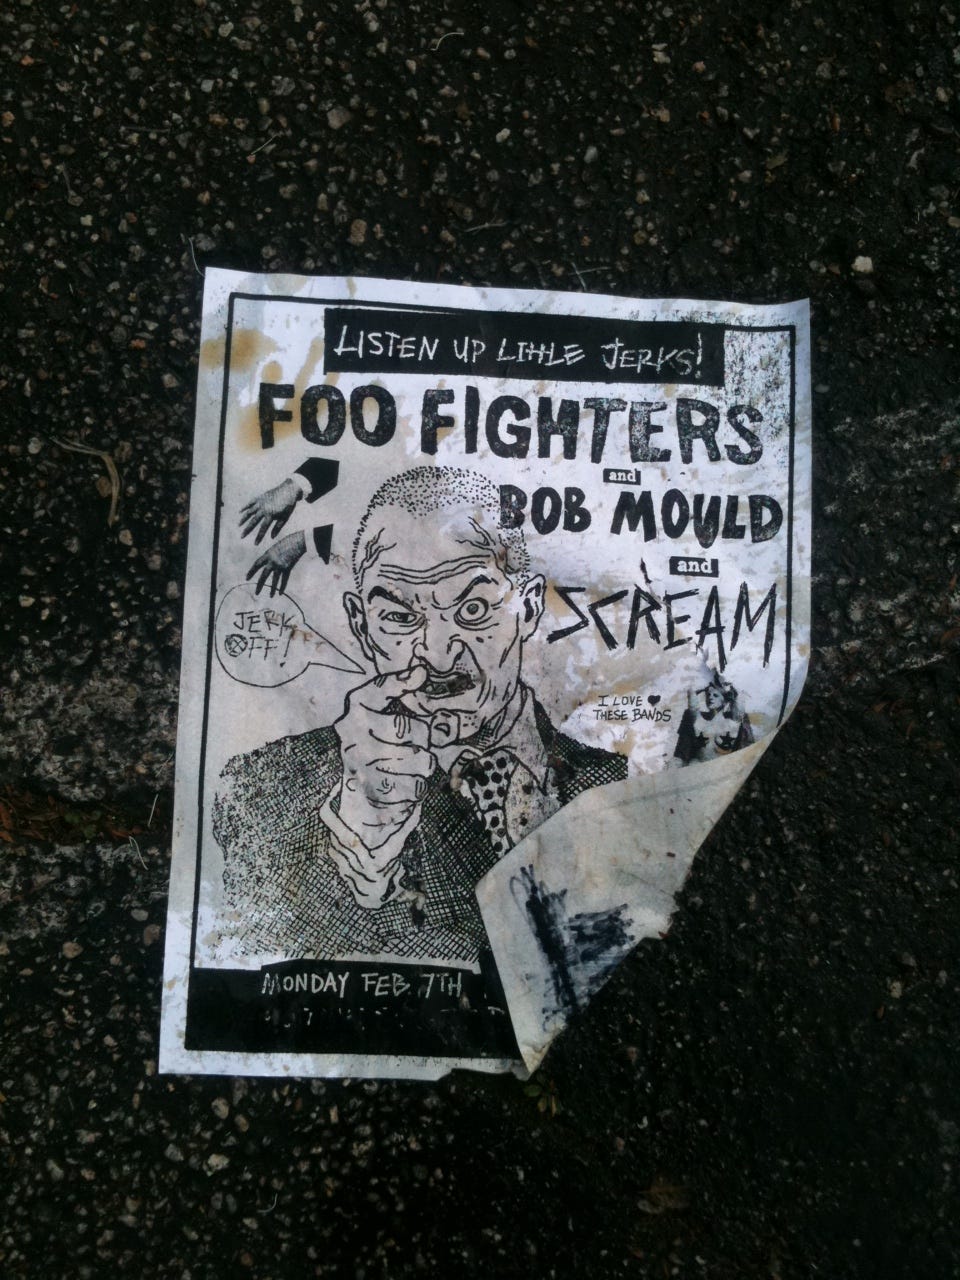 LISTEN UP LITTLE JERKS!
FOO FIGHTERS
and
BOB MOULD
and
SCREAM
JERK
OFF!
I LOVE ♥
THESE BANDS
MONDAY FEB. 7TH